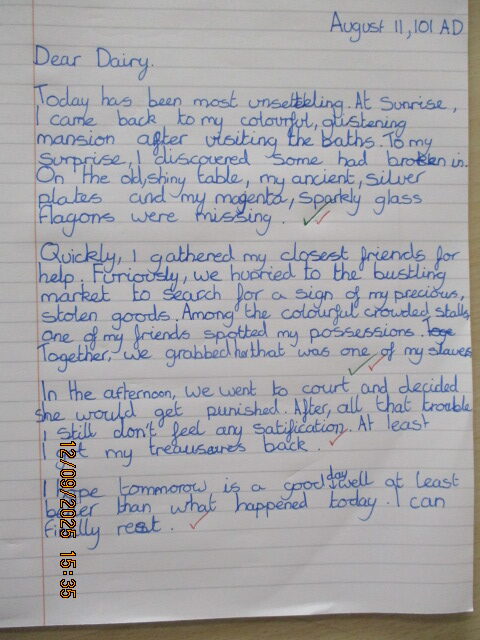 August 11, 101 AD
Dear Dairy.
Today has been most unsetteling. At Sunrise,
I came back to my colourful, glistening
mansion after visiting the baths. To my
surprise, I discovered some had broken in.
On the old, shiny table, my ancient, silver
plates and my magenta, sparkly glass
flagons were missing.
Quickly, I gathered my closest friends for
help. Furiously, we hurried to the bustling
market to search for a sign of my precious,
stolen goods. Among the colourful crowded stalls,
one of my friends spotted my possessions.
Together, we grabbed her that was one of my slaves
In the afternoon, we went to court and decided
she would get punished. After, all that trouble
I still don't feel any satification. At least
I got my treausures back.
I hope tommorow is a good day well at least
better than what happened today. I can
finally rest.
12/09/2025 15:35